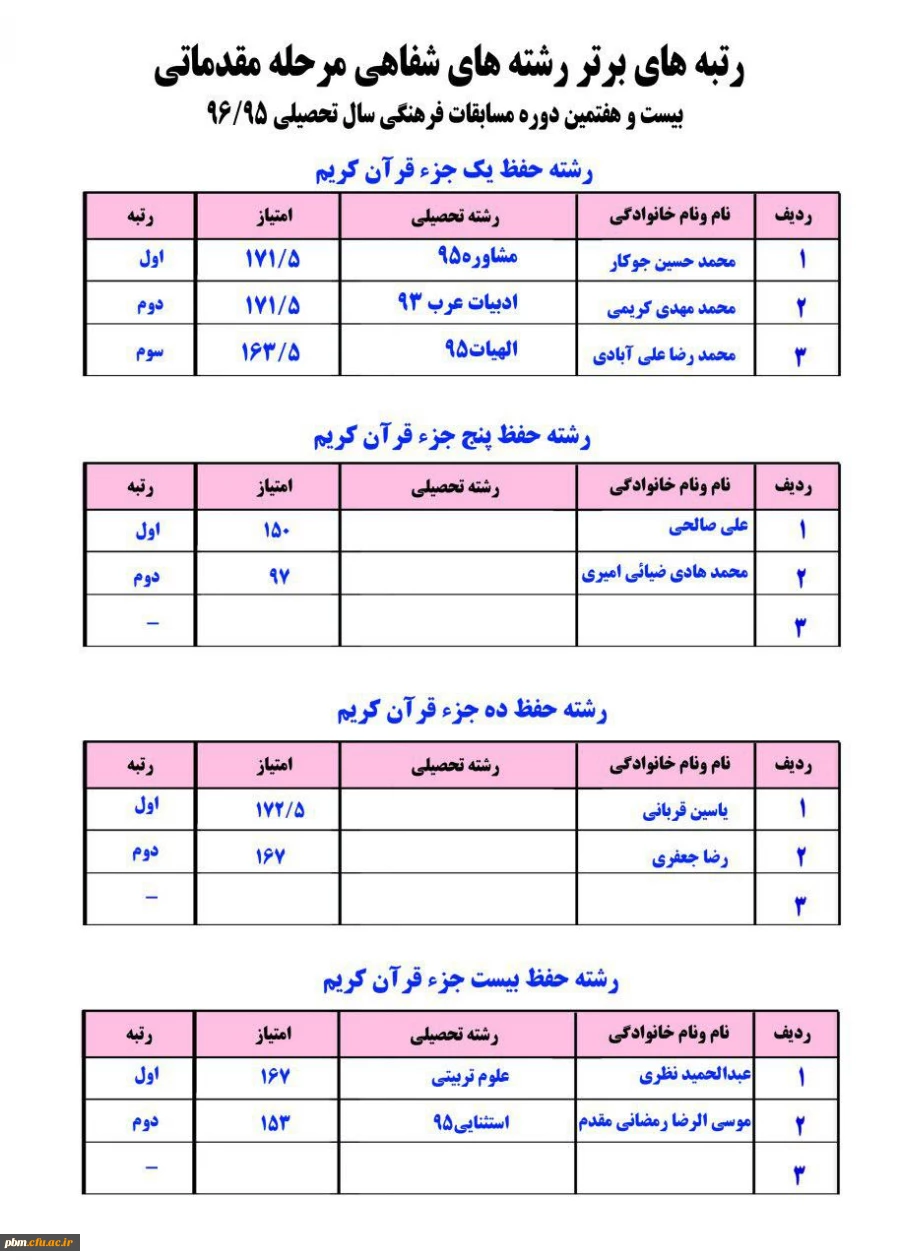 رتبه های برتر رشته های شفاهی مرحله مقدماتی
بیست و هفتمین دوره مسابقات فرهنگی سال تحصیلی ۹۶/۹۵
رشته حفظ یک جزء قرآن کریم
ردیف نام ونام خانوادگی رشته تحصیلی امتیاز رتبه
۱ محمد حسین جوکار مشاوره۹۵ ۱۷۱/۵ اول
۲ محمد مهدی کریمی ادبیات عرب ۹۳ ۱۷۱/۵ دوم
۳ محمد رضا علی آبادی الهیات۹۵ ۱۶۳/۵ سوم
رشته حفظ پنج جزء قرآن کریم
ردیف نام ونام خانوادگی رشته تحصیلی امتیاز رتبه
۱ علی صالحی ۱۵۰ اول
۲ محمد هادی ضیائی امیری ۹۷ دوم
۳ –
رشته حفظ ده جزء قرآن کریم
ردیف نام ونام خانوادگی رشته تحصیلی امتیاز رتبه
۱ یاسین قربانی ۱۷۲/۵ اول
۲ رضا جعفری ۱۶۷ دوم
۳ –
رشته حفظ بیست جزء قرآن کریم
ردیف نام ونام خانوادگی رشته تحصیلی امتیاز رتبه
۱ عبدالحمید نظری علوم تربیتی ۱۶۷ اول
۲ موسی الرضا رمضانی مقدم استثنایی۹۵ ۱۵۳ دوم
۳ –
pbm.cfu.ac.ir